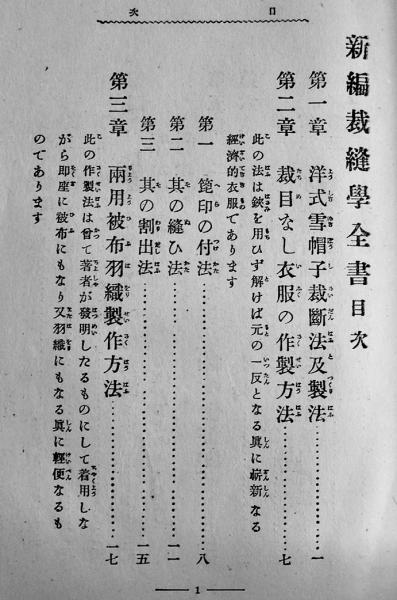 目次
新編裁縫學全書目次
第一章 洋式雪帽子裁斷法及製法……一
第二章 裁目なし衣服の作製方法……七
此の法は鋏を用ひず解けば元の一反となる眞に嶄新なる
經濟的衣服であります
第一 箆印の付法……八
第二 其の縫ひ法……一一
第三 其の割出法……一五
第三章 兩用被布羽織製作方法……一七
此の作製法は曾て著者が發明したるものにして着用しな
がら即座に被布にもなり又羽織にもなる眞に輕便なるも
のであります
1